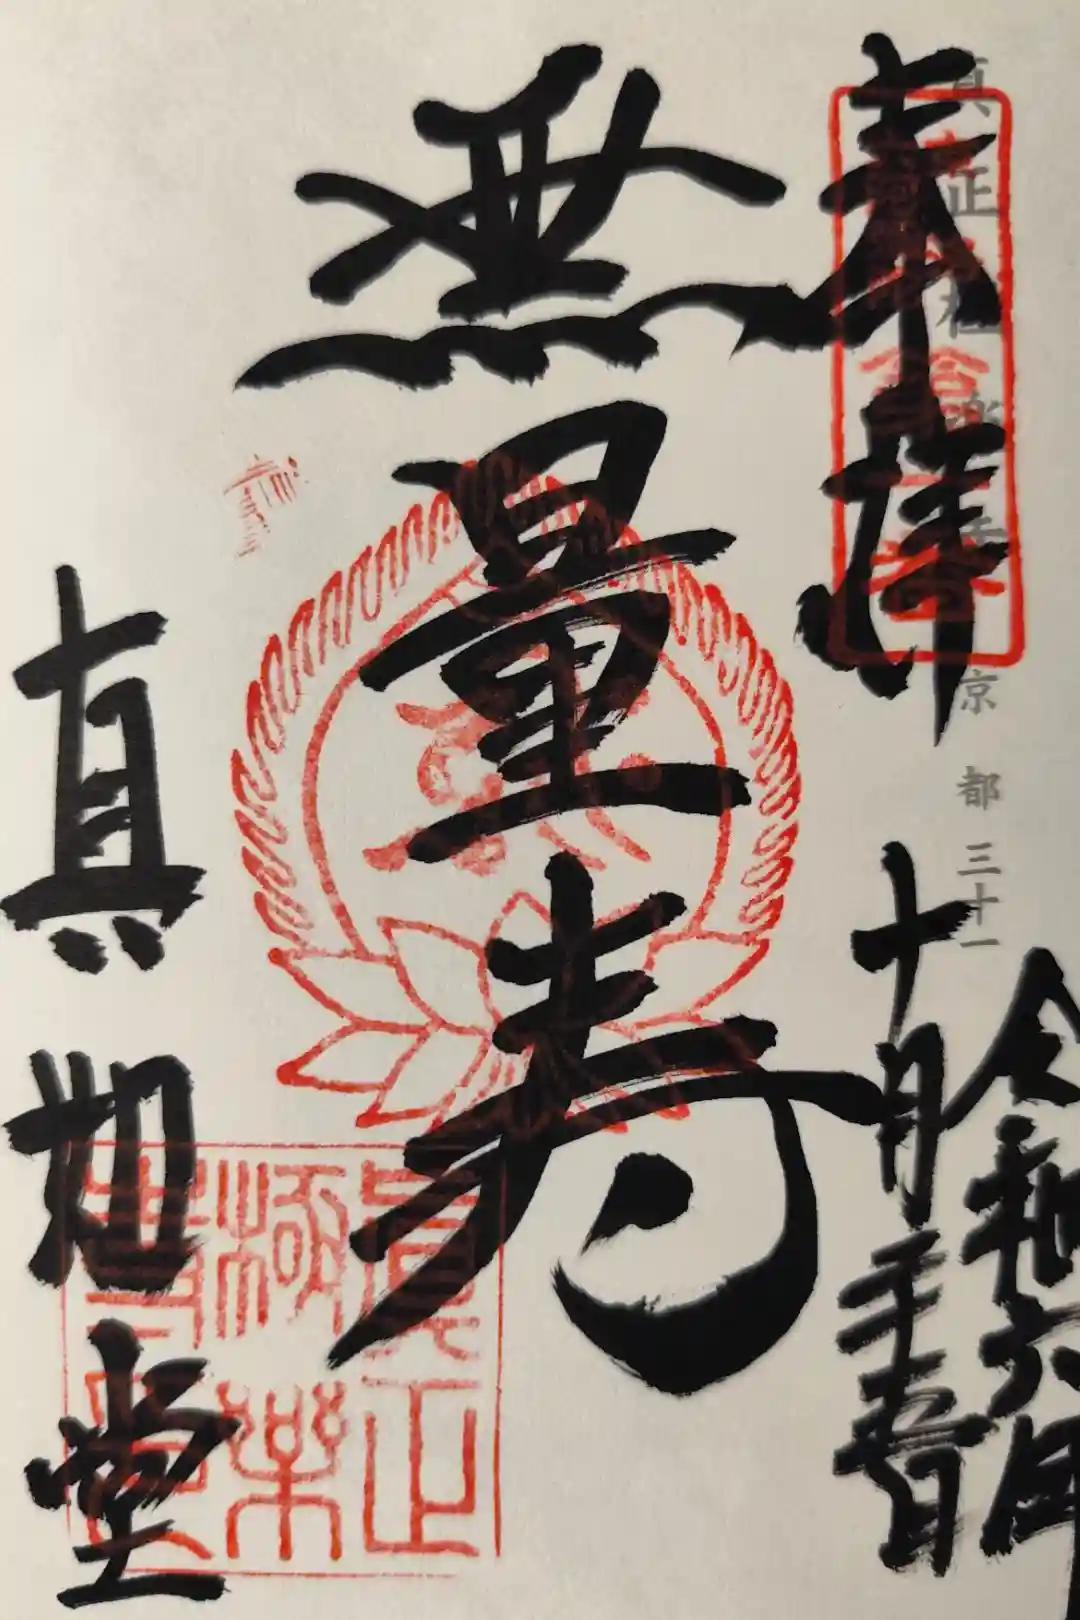 真正極楽寺
京都
三十一
奉拝
令和六年
十月二十五日
無量寿
真如堂
眞正
極樂